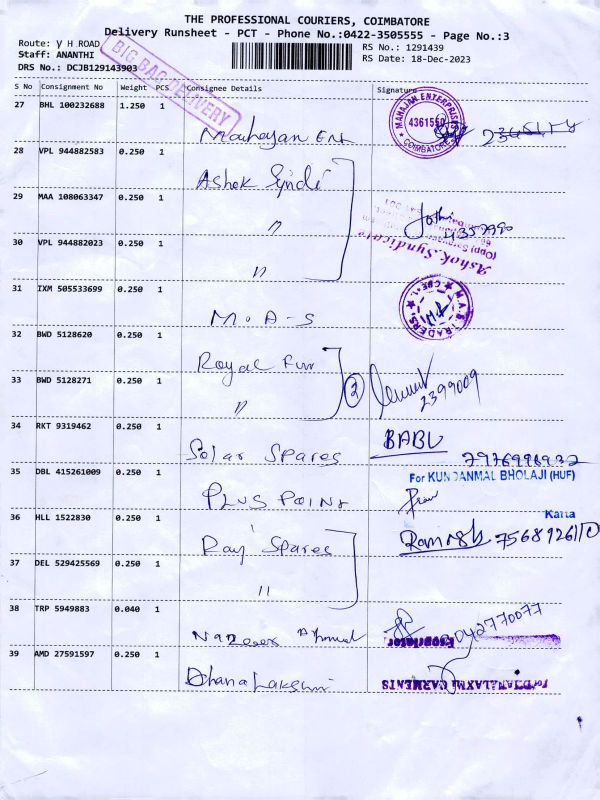 THE PROFESSIONAL COURIERS, COIMBATORE
Delivery Runsheet - PCT - Phone No.:0422-3505555 - Page No.:3
Route: V H ROAD
RS No.: 1291439
Staff: ANANTHI
RS Date: 18-Dec-2023
DRS No.: DCJB129143903
BIG BAG DELIVERY
S No Consignment No Weight PCS Consignee Details Signature
27 BHL 100232688 1.250 1
Mahajan Ent
MAHAJAN ENTERPRISES
4361550
COIMBATORE
28 VPL 944882583 0.250 1
Ashok Syndi
29 MAA 108063347 0.250 1
"
Jothi
4357990
30 VPL 944882023 0.250 1
"
Ashok Syndicate
31 IXM 505533699 0.250 1
M.A-S
M.A.S TRADERS
CBE-1
32 BWD 5128620 0.250 1
Royal Fur
33 BWD 5128271 0.250 1
"
2
2399009
34 RKT 9319462 0.250 1
Solar Spares
BABU
35 DBL 415261009 0.250 1
PLUS POINT
For KUNDANMAL BHOLAJI (HUF)
Karta
36 HLL 1522830 0.250 1
Raj Spares
37 DEL 529425569 0.250 1
"
38 TRP 5949883 0.040 1
Nazeer Ahmed
Proprietor
39 AMD 27591597 0.250 1
Dhana Lakshmi
for DHANALAXMI GARMENTS